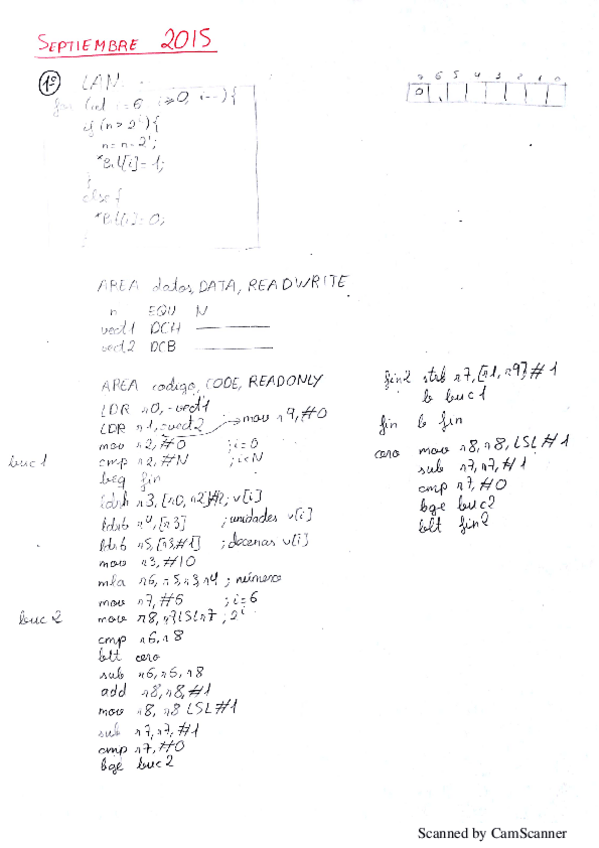 SEPTIEMBRE 2015
1º LAN
7 6 5 4 3 2 1 0
0
for (int i=6, i>0, i--) {
if (n > 2^i) {
n = n-2^i;
*Bit[i]=1;
}
else {
*Bit[i]=0;
AREA datos, DATA, READWRITE
n EQU N
vect1 DCH
vect2 DCB
AREA codigo, CODE, READONLY
LDR r0,=vect1
LDR r1,=vect2 → mov r9,#0
mov r2,#0 ;i=0
buc1 cmp r2,#N ;i<N
beq fin
ldrh r3,[r0,r2]#2; v[i]
ldrb r4,[r3] ;unidades v[i]
ldrb r5,[r3,#1] ;decenas v[i]
mov r3,#10
mla r6,r5,r3,r4 ; número
mov r7,#6 ;i=6
buc2 mov r8,r7LSLr7 ;2^i
cmp r6,r8
blt cero
sub r6,r6,r8
add r8,r8,#1
mov r8,r8 LSL#1
sub r7,r7,#1
cmp r7,#0
bge buc2
fin2 strb r7,[r1,r9],#1
b buc1
fin b fin
cero mov r8,r8,LSL#1
sub r7,r7,#1
cmp r7,#0
bge buc2
blt fin2
Scanned by CamScanner